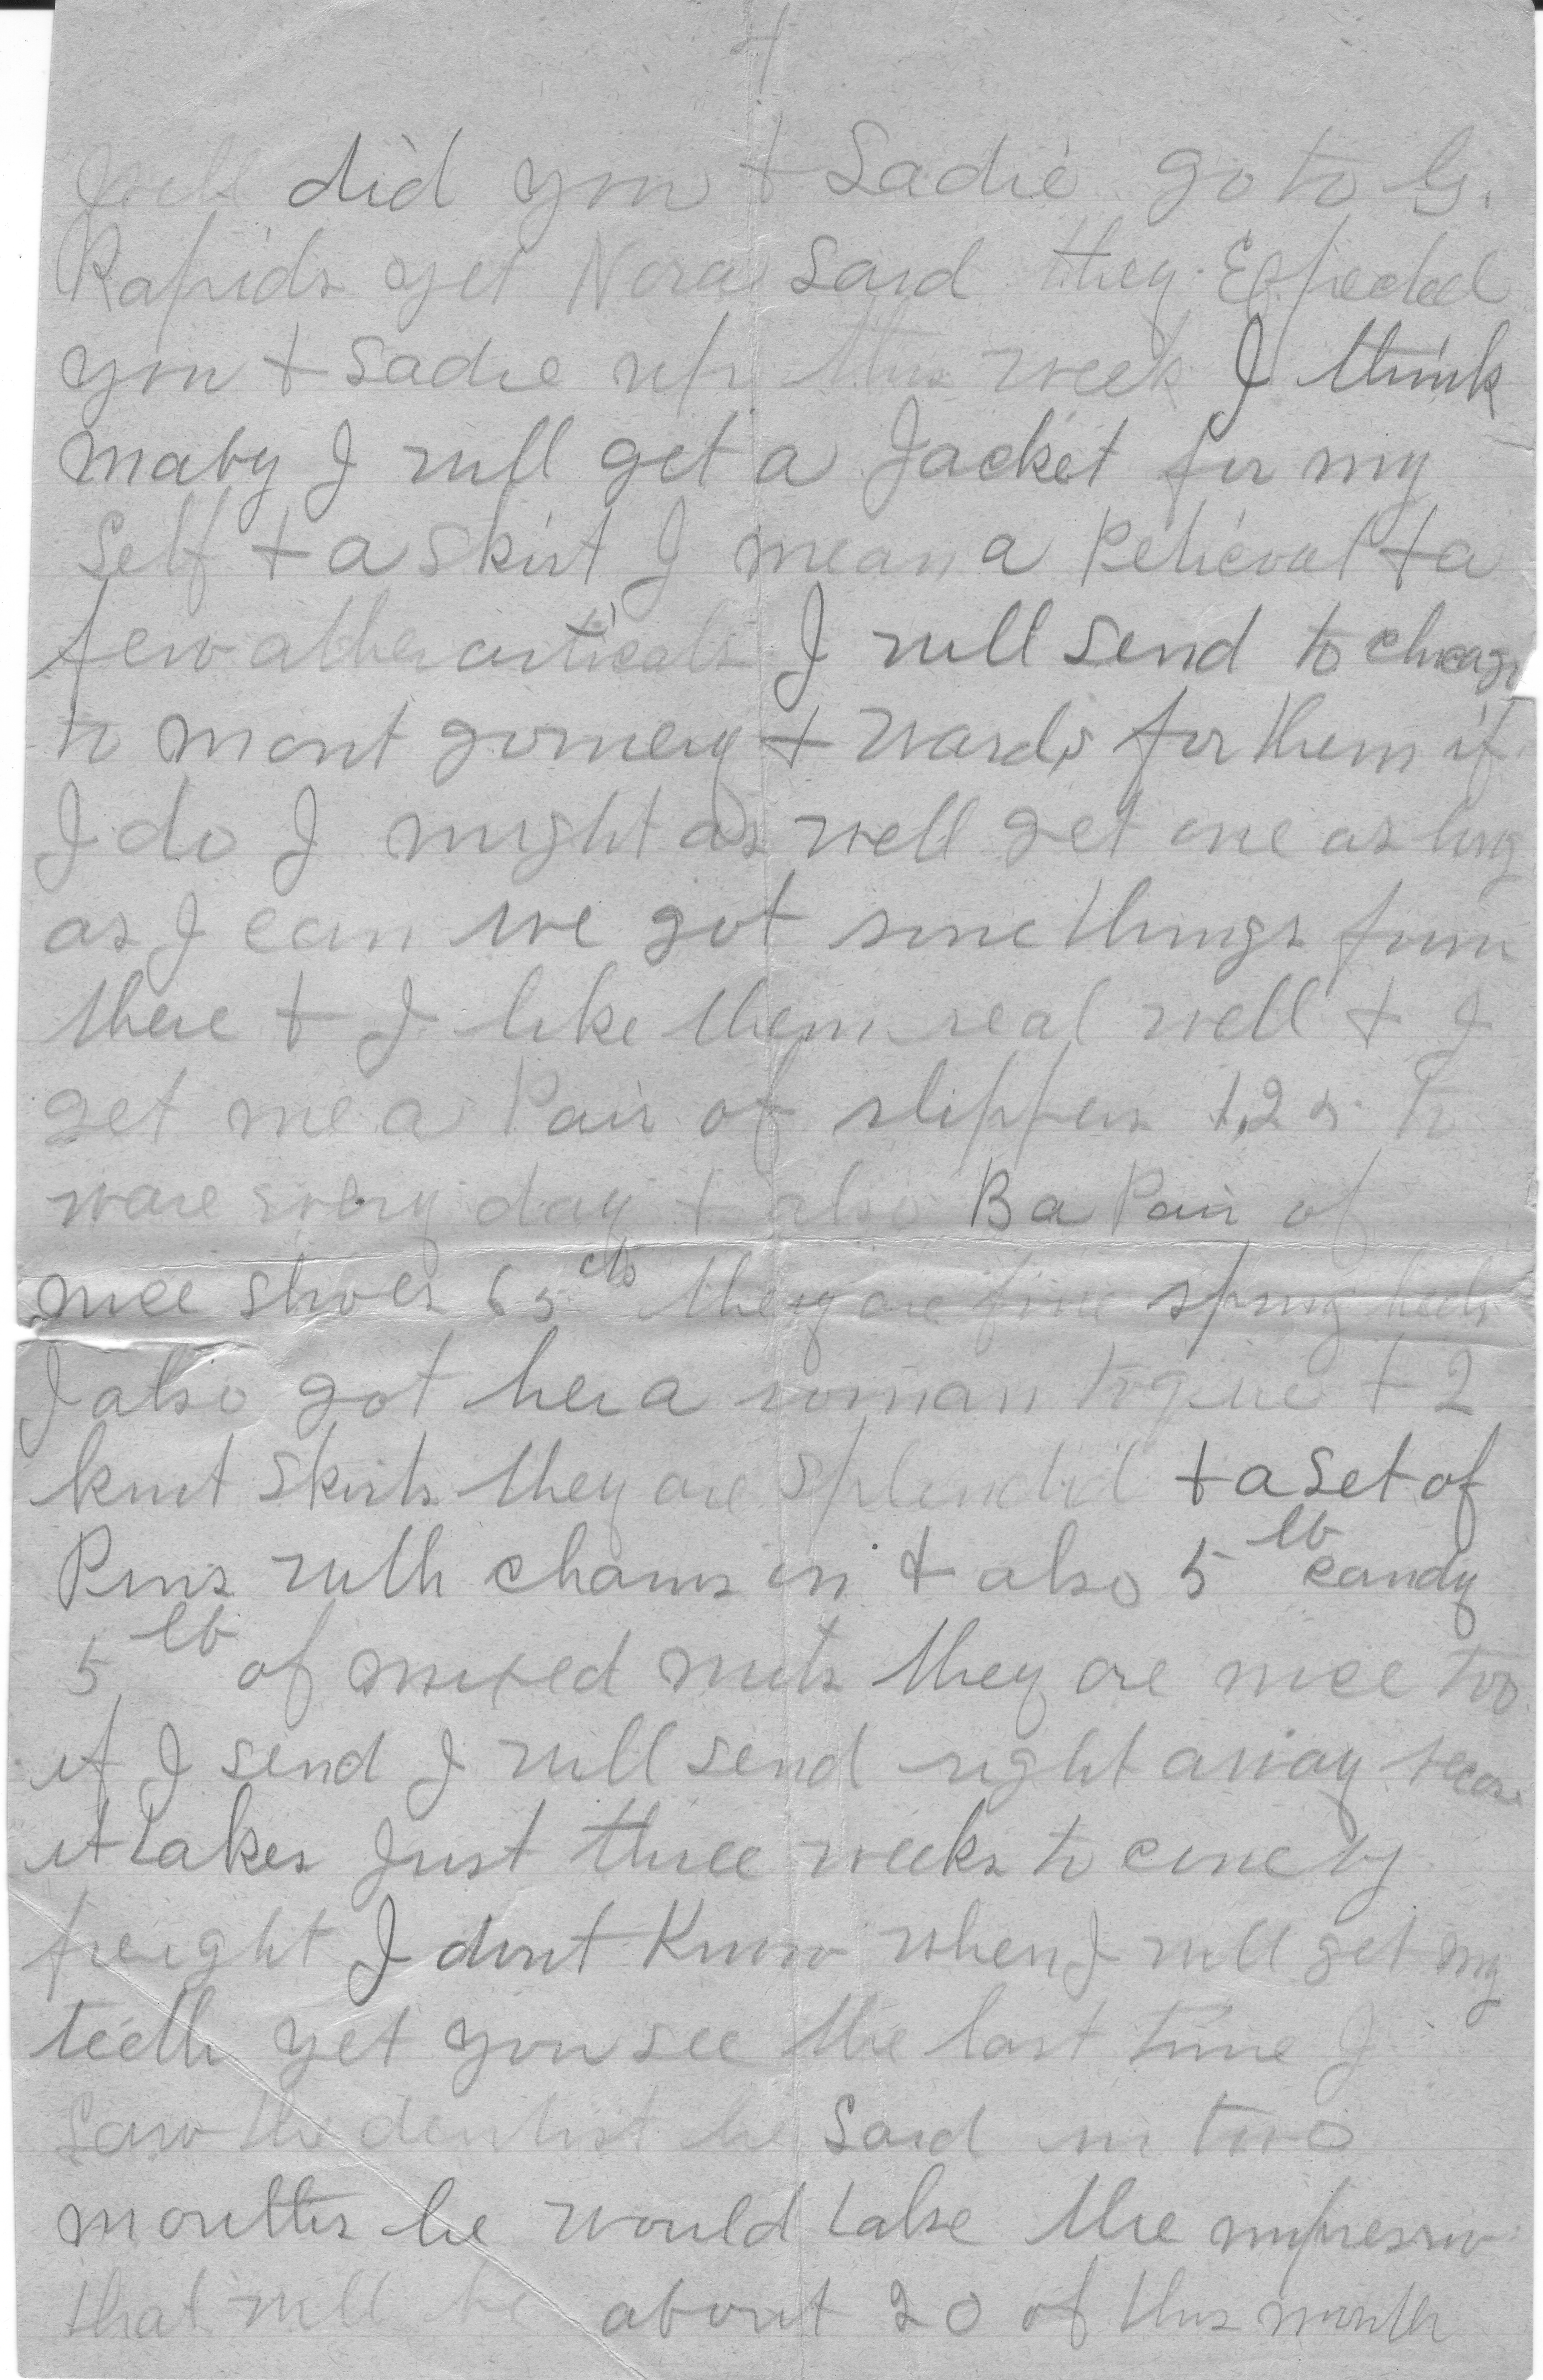 4
Well did you + Sadie go to G.
Rapids yet Nora said they Expected
you + Sadie up this week I think
maby I will get a Jacket for my
Self + a skirt I mean a Peticoat + a
few other articals I will send to chicago
to mont gomery + wards for them if
I do I might as well get one as long
as I can we got some things from
there + I like them real well + I
get me a Pair of slippers 1,25 to
ware every day + also B a Pair of
nice shoes 65 cts they are fine spring heels
I also got her a woman + 2
knit skirts they are splendid + a set of
Pins with chains on + also 5 lb candy
5 lb of mixed nuts they are nice too
if I send I will send right away
it takes Just three weeks to come by
freight I dont Know when I will get my
teeth yet you see the last time I
saw the dentist he said in two
months he would take the impression
that will be about 20 of this month